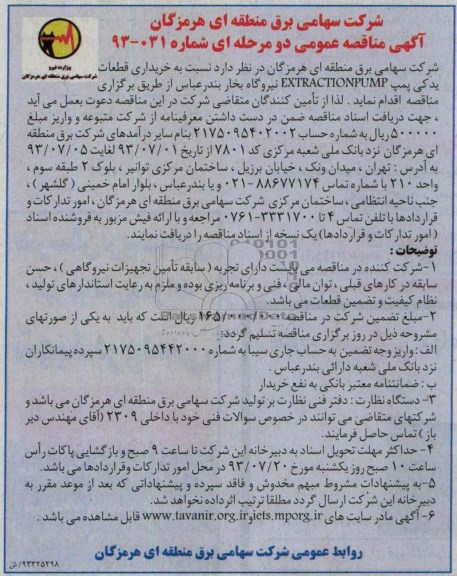 شرکت سهامی برق منطقه ای هرمزگان
آگهی مناقصه عمومی دو مرحله ای شماره ۰۳۱-۹۳
وزارت نیرو
شرکت سهامی برق منطقه ای هرمزگان
شرکت سهامی برق منطقه ای هرمزگان در نظر دارد نسبت به خریداری قطعات
یدکی پمپ EXTRACTIONPUMP نیروگاه بخار بندرعباس از طریق برگزاری
مناقصه اقدام نماید. لذا از تأمین کنندگان متقاضی شرکت در این مناقصه دعوت بعمل می آید
، جهت دریافت اسناد مناقصه ضمن در دست داشتن معرفینامه از شرکت متبوعه و واریز مبلغ
۵۰۰۰۰۰ ریال به شماره حساب ۲۱۷۵۰۹۵۴۰۲۰۰۲ بنام سایر درآمدهای شرکت برق منطقه
ای هرمزگان نزد بانک ملی شعبه مرکزی کد ۷۸۰۱ از تاریخ ۹۳/۰۷/۰۱ لغایت ۹۳/۰۷/۰۵
به آدرس : تهران ، میدان ونک ، خیابان برزیل ، ساختمان مرکزی توانیر ، بلوک ۲ طبقه سوم ،
واحد ۲۱۰ با شماره تماس ۸۸۶۷۷۱۷۴-۰۲۱ و یا بندرعباس ، بلوار امام خمینی ( گلشهر ) ،
جنب ناحیه انتظامی ، ساختمان مرکزی شرکت سهامی برق منطقه ای هرمزگان ، امور تدارکات و
قراردادها با تلفن تماس ۴ تا ۳۳۳۱۷۰۰-۰۷۶۱ مراجعه و با ارائه فیش مزبور به فروشنده اسناد
( امور تدارکات و قراردادها) یک نسخه از اسناد مناقصه را دریافت نمایند.
توضیحات :
۱-شرکت کننده در مناقصه می بایست دارای تجربه ( سابقه تأمین تجهیزات نیروگاهی ) ، حسن
سابقه در کارهای قبلی ، توان مالی ، فنی و برنامه ریزی بوده و ملزم به رعایت استاندارهای تولید ،
نظام کیفیت و تضمین قطعات می باشد.
۲-مبلغ تضمین شرکت در مناقصه ۱۶۵/۰۰۰/۰۰۰ ریال است که باید به یکی از صورتهای
مشروحه ذیل در روز برگزاری مناقصه تسلیم گردد:
الف : واریز وجه تضمین به حساب جاری سیبا به شماره ۲۱۷۵۰۹۵۴۴۲۰۰۰ سپرده پیمانکاران
نزد بانک ملی شعبه دارائی بندرعباس .
ب : ضمانتنامه معتبر بانکی به نفع خریدار
۳- دستگاه نظارت : دفتر فنی نظارت بر تولید شرکت سهامی برق منطقه ای هرمزگان می باشد و
شرکتهای متقاضی می توانند در خصوص سوالات فنی خود با داخلی ۲۳۰۹ (آقای مهندس دیر
باز ) تماس حاصل فرمایند.
۴- حداکثر مهلت تحویل اسناد به دبیرخانه این شرکت تا ساعت ۹ صبح و بازگشایی پاکات رأس
ساعت ۱۰ صبح روز یکشنبه مورخ ۹۳/۰۷/۲۰ در محل امور تدارکات وقراردادها می باشد.
۵-به پیشنهادات مشروط مبهم مخدوش و فاقد سپرده و پیشنهاداتی که بعد از موعد مقرر به
دبیرخانه این شرکت ارسال گردد مطلقا ترتیب اثر داده نخواهد شد.
۶- آگهی مادر سایت های www.tavanir.org.ir,iets.mporg.ir قابل مشاهده می باشد .
روابط عمومی شرکت سهامی برق منطقه ای هرمزگان
۹۳۲۲۵۲۹۸/ش